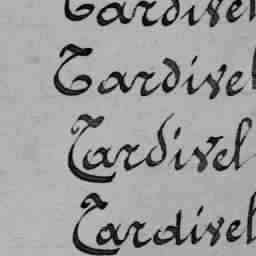 Tardivel
Tardivel
Tardivel
Tardivel